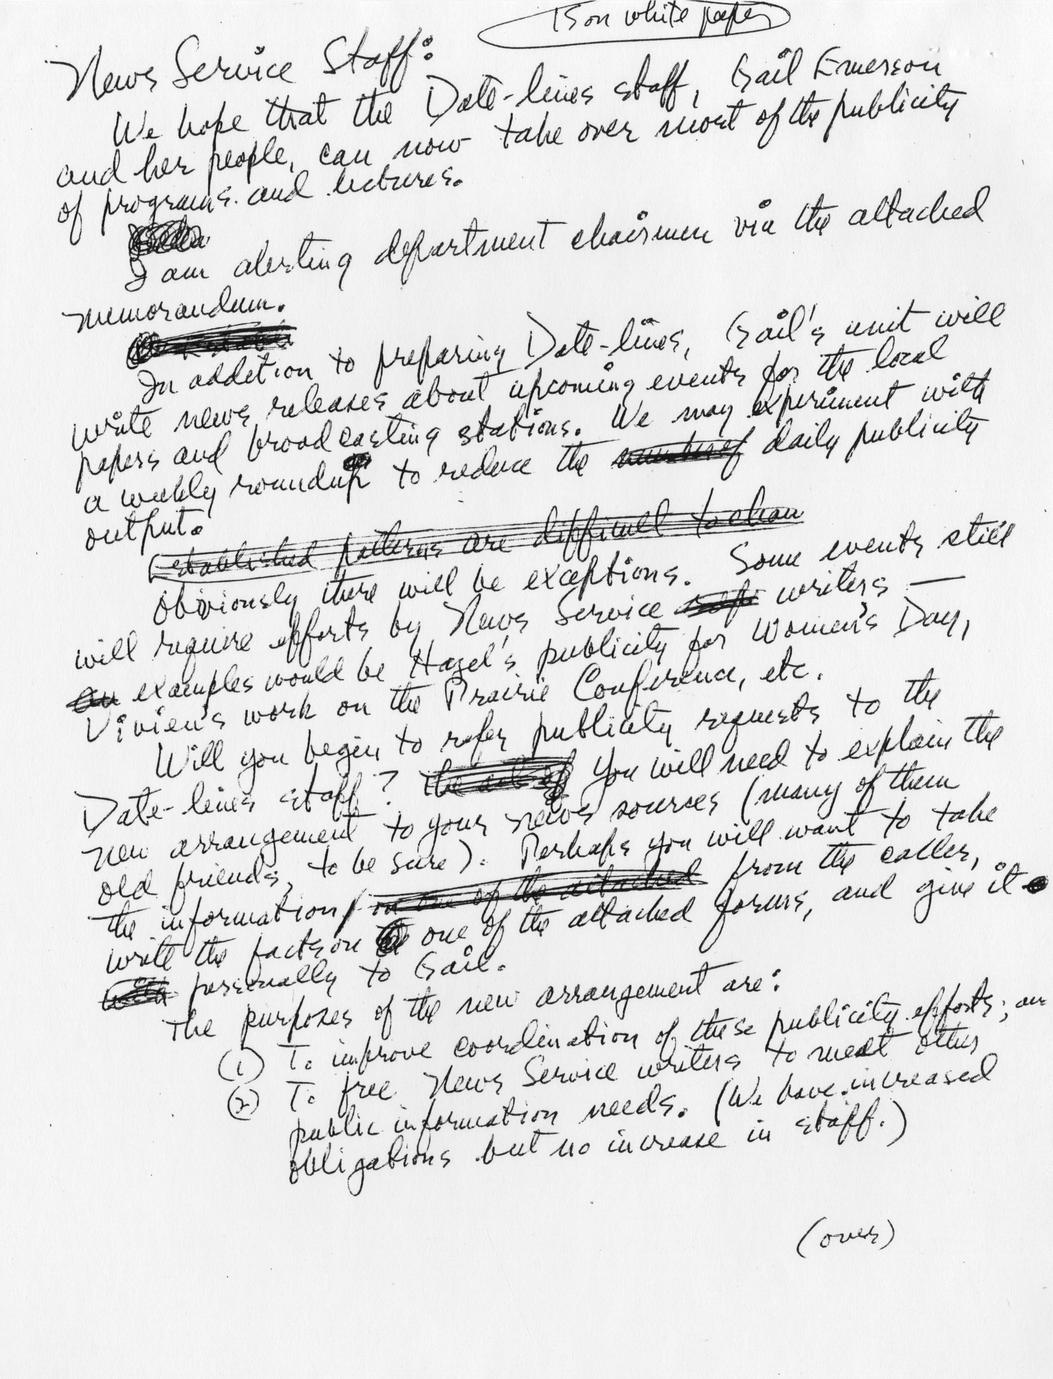 15 on white paper
News Service Staff:
We hope that the Date-lines staff, Gail Emerson
and her people, can now take over most of the publicity
of programs and lectures.
I am alerting department chairmen via the attached
memorandum.
In addition to preparing Date-lines, Gail's unit will
write news releases about upcoming events for the local
papers and broadcasting stations. We may experiment with
a weekly roundup to reduce the number of daily publicity
output.
Established patterns are difficult to chan
Obviously there will be exceptions. Some events still
will require efforts by News Service writers —
an examples would be Hazel's publicity for Women's Day,
Vivien's work on the Prairie Conference, etc.
Will you begin to refer publicity requests to the
Date-lines staff? You will need to explain the
new arrangement to your news sources (many of them
old friends, to be sure). Perhaps you will want to take
the information on one of the attached from the caller,
write the facts on one of the attached forms, and give it
personally to Gail.
The purposes of the new arrangement are:
(1) To improve coordination of these publicity efforts; an
(2) To free News Service writers to meet other
public information needs. (We have increased
obligations but no increase in staff.)
(over)